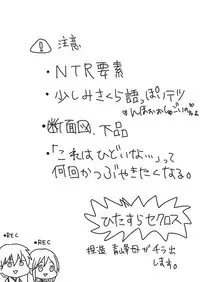 注意
・NTR要素
・少しみさくら語っぽいデス
・断面図、下品
・「これはひどいな…」って
何回かつぶやきたくなる。
ひたすらセクロス
捏造 青峰母がチラ出
します。
●REC
●REC